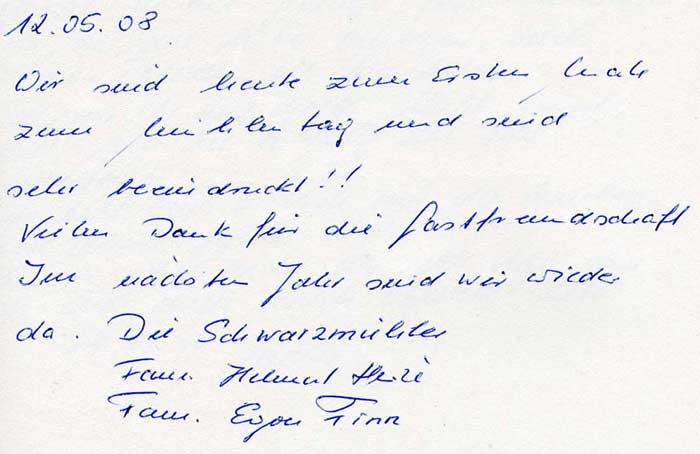 12.05.08
Wir sind heute zum Ersten Male
zum Mühlentag und sind
sehr beeindruckt!!
Vielen Dank für die Gastfreundschaft
Im nächsten Jahr sind wir wieder
da. Die Schwarzmühler
Fam. Helmut
Fam. Egon Finn